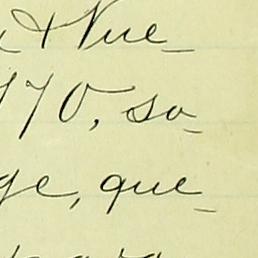 & Nue_
170, so_
ge, que_